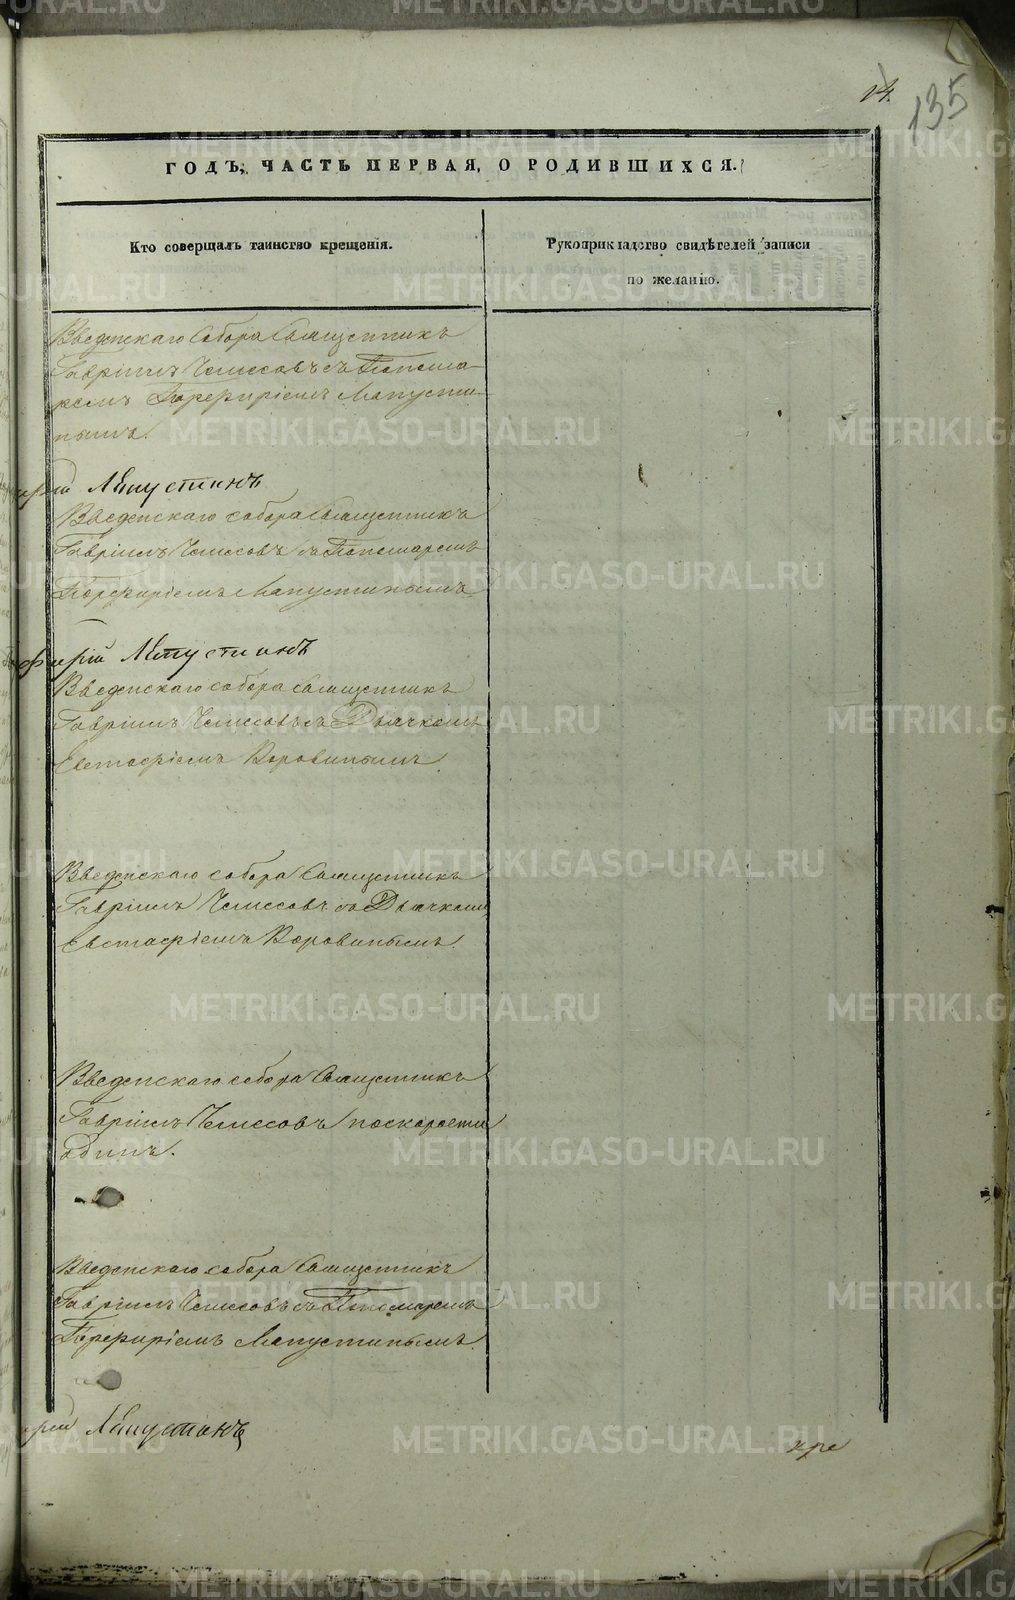 14
135
ГОДЪ, ЧАСТЬ ПЕРВАЯ, О РОДИВШИХСЯ.
Кто совершалъ таинство крещенія.
Рукоприкладство свидѣтелей записи
по желанію.
Введенскаго Собора Священникъ
Гавріилъ Чемесовъ съ Понома-
ремъ Порфиріемъ Лапусти-
нымъ.
ирій Лапустинъ
Введенскаго собора Священникъ
Гавріилъ Чемесовъ съ Пономаремъ
Порфиріемъ Лапустинымъ.
фирій Лапустинъ
Введенскаго собора Священникъ
Гавріилъ Чемесовъ съ Дьячкомъ
Евстафіемъ Коровинымъ.
Введенскаго собора Священникъ
Гавріилъ Чемесовъ съ Дьячкомъ
Евстафіемъ Коровинымъ.
Введенскаго собора Священникъ
Гавріилъ Чемесовъ поскорости
одинъ.
Введенскаго собора Священникъ
Гавріилъ Чемесовъ съ Пономаремъ
Порфиріемъ Лапустинымъ.
ирій Лапустинъ
кре
METRIKI.GASO-URAL.RU